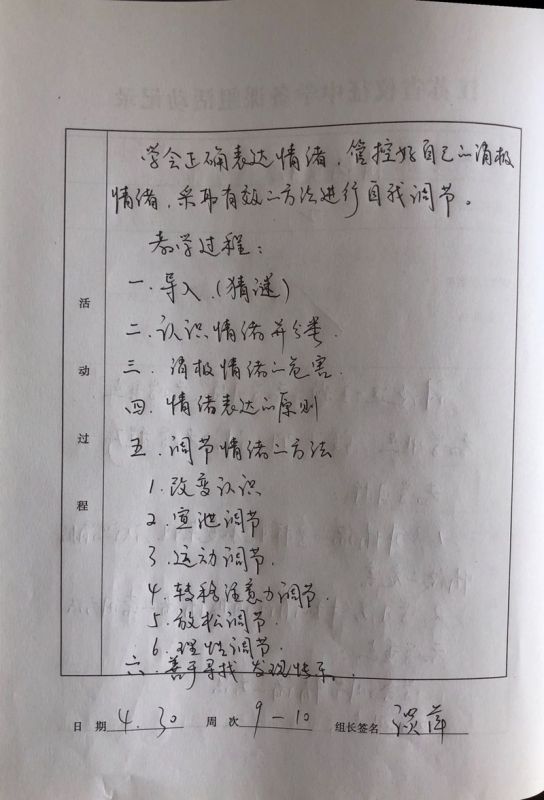 学会正确表达情绪，管控好自己的消极
情绪，采取有效的方法进行自我调节。
教学过程：
一．导入．（猜谜）
二．认识情绪并分类．
三．消极情绪的危害．
四．情绪表达的原则
五．调节情绪的方法
1．改变认识
2．宣泄调节
3．运动调节．
4．转移注意力调节．
5．放松调节．
6．理性调节．
六．善于寻找 发现快乐．
活动过程
日 期 4．30 周 次 9－10 组长签名